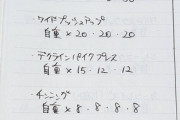 ・ワイドプッシュアップ
自重 × 20・20・20
・デクラインパイクプレス
自重 × 15・12・12
・チンニング
自重 × 8・8・8・8